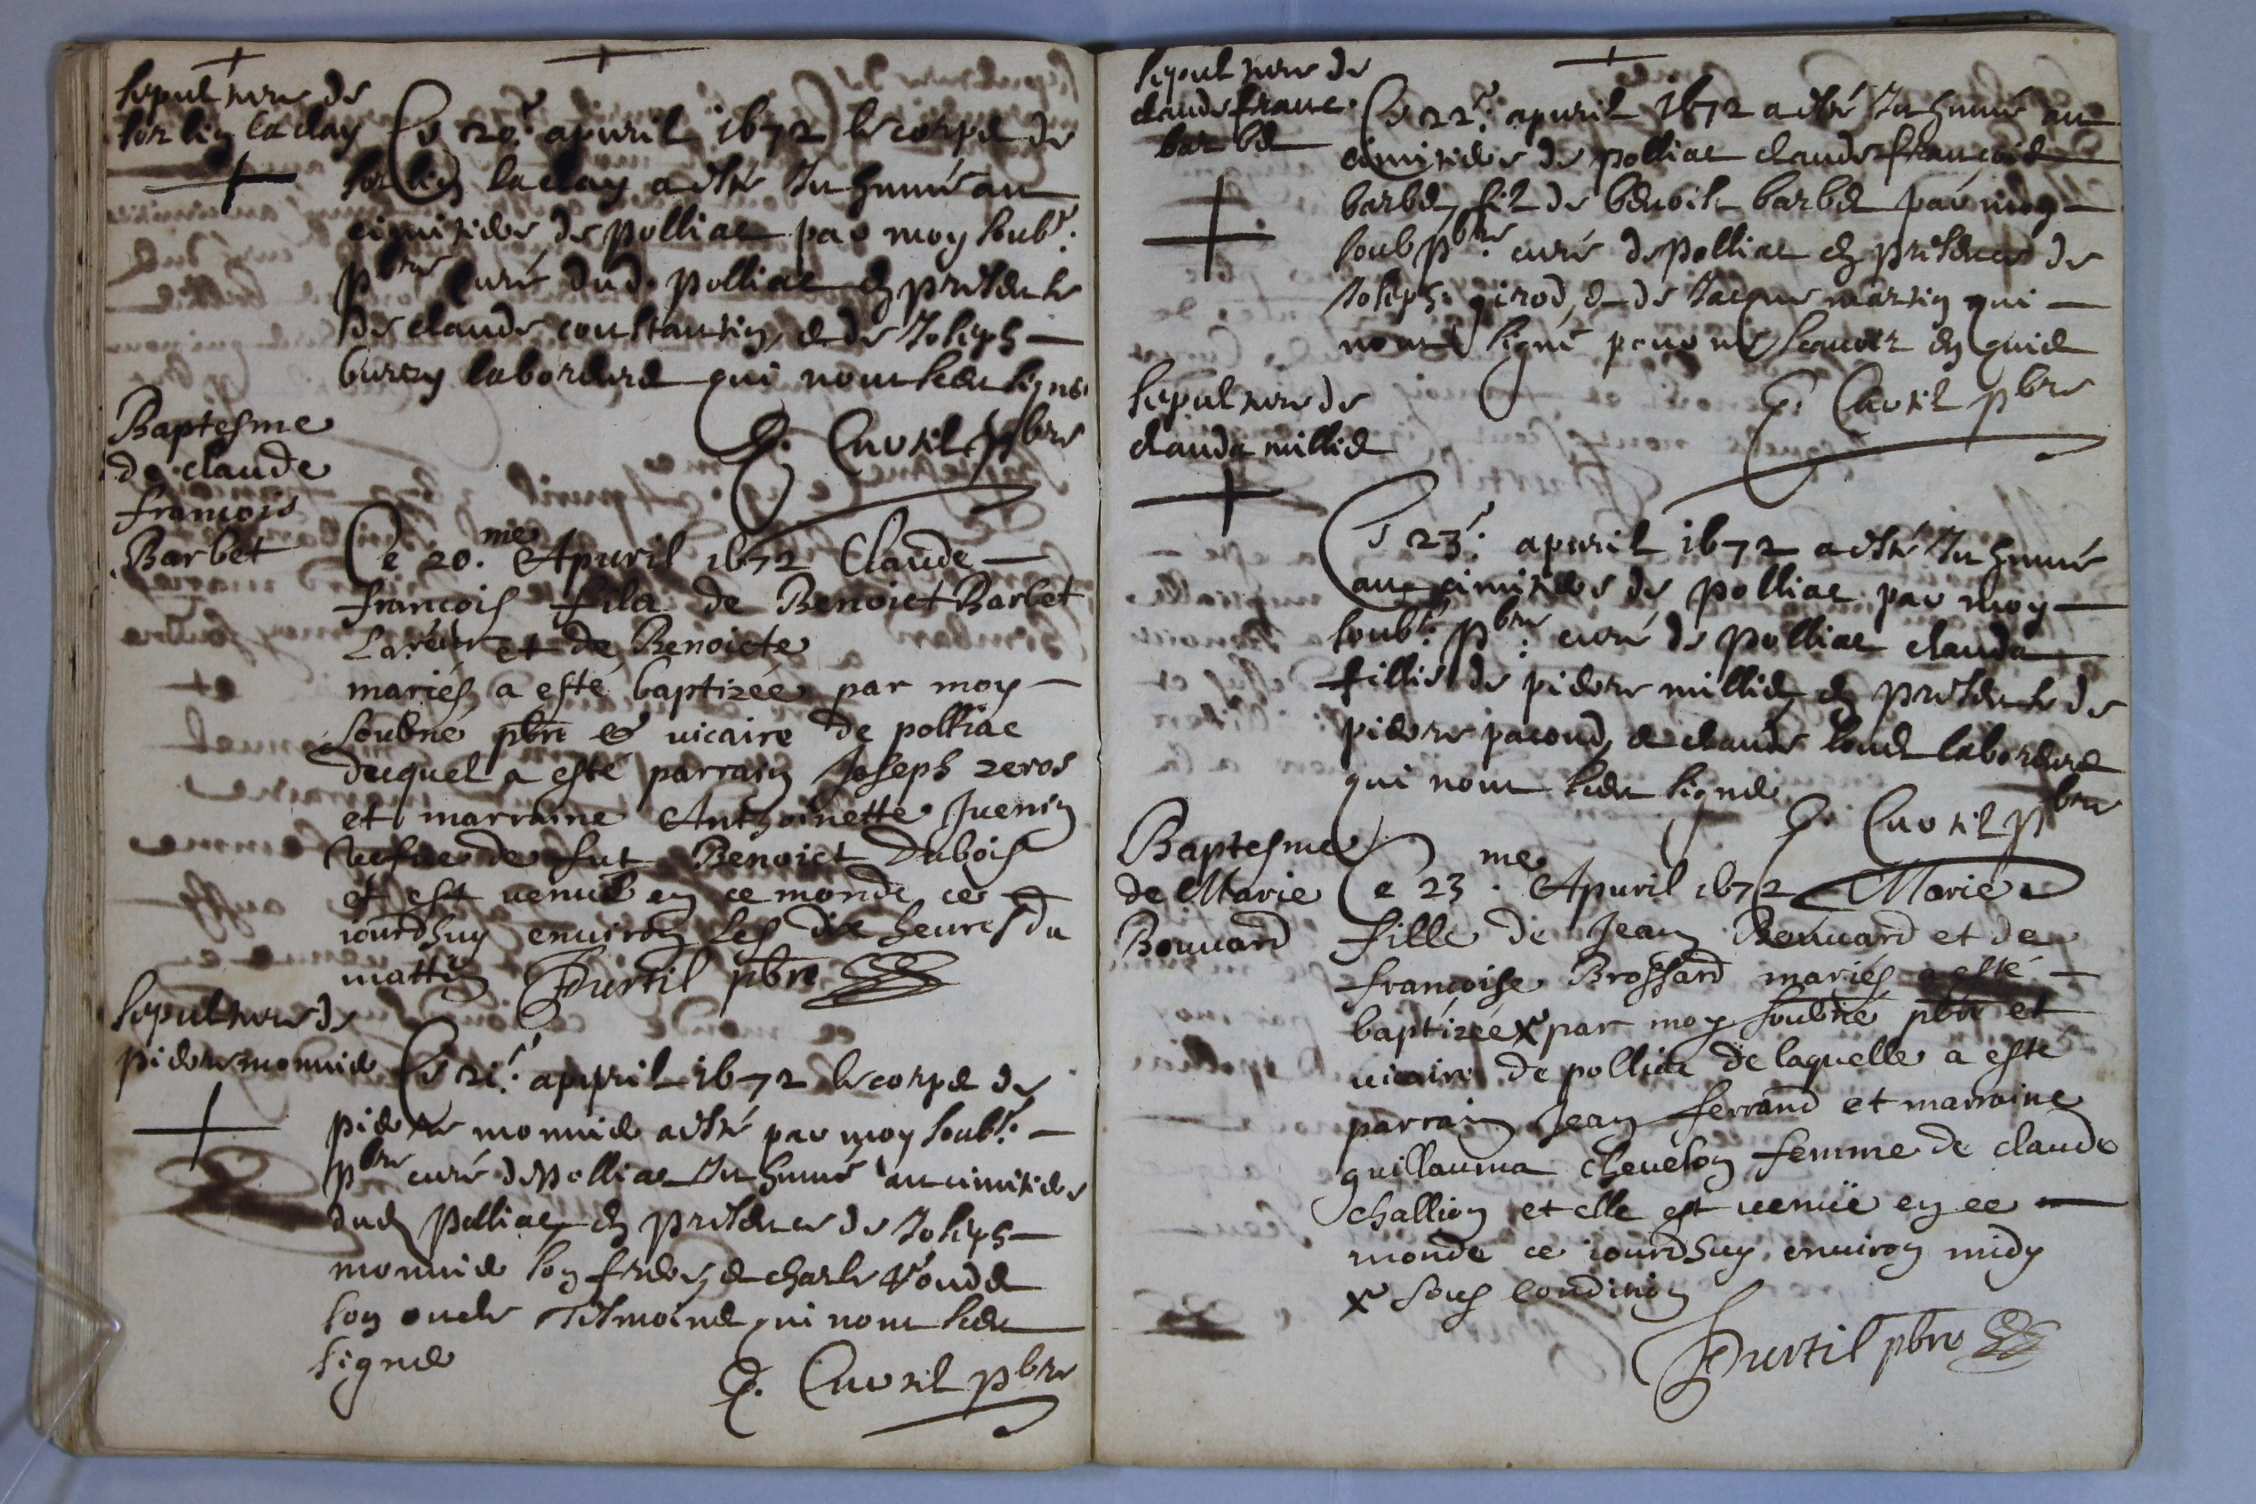 sepulture de
sorlin laclay
Ce 20e apuril 1672 le corps de
sorlin laclay a esté Inhumé au
cimitiere de polliac par moy soubt.
pbre curé dud. polliac en presence
de claude constantin, et de Joseph
laboreurs qui nont sceu signé
C. Curtil pbre
Baptesme
de claude
francois
Barbet
Ce 20.me Apuril 1672 Claude
francois fils de Benoict Barbet
et de Benoicte
mariés a esté baptizée par moy
soubné pbre & vicaire de polliac
duquel a esté parrain Joseph
et marraine Anthoinette Juenin
vefue de fut Benoict Dubois
et est venue en ce monde ce
iourdhuy environ les dix heures du
mattin Curtil pbre
sepulture de
pierre monnie
Ce 21e apvril 1672 le corps de
pierre monnie a esté par moy soubt.
pbre curé de polliac Inhumé au cimitiere
dud polliac, en presence de Joseph
monnie son frere, et charle
son oncle tesmoins qui nont sceu
signé
C. Curtil pbre
sepulture de
claude franc.
barbet
Ce 22e apuril 1672 a esté Inhumé au
cimitiere de polliac claude françois
barbet, fil de benoit barbet par moy
soub pbre curé de polliac en presence de
Joseph girod, et de Jacque martin qui
nont signé pour ne scavoir en quis
C. Curtil pbre
sepulture de
clauda milliet
Ce 23e apuril 1672 a esté Inhumé
au cimitiere de polliac par moy
soubt. pbre curé de polliac clauda
fillie de pierre milliet, en presence de
pierre pacoud, et claude laboreurs
qui nont sceu signé
C. Curtil pbre
Baptesme
de Marie
Bouuard
Ce 23.me Apuril 1672 Marie
fille de Jean Bouuard et de
francoise Brossard mariés a esté
baptizée x par moy soubné pbre et
vicaire de polliac de laquelle a esté
parrain Jean ferrand et marraine
guillauma chevelon femme de claude
challion et elle est venüe en ce
monde ce iourdhuy environ midy
x sous condition
Curtil pbre